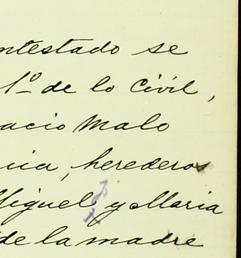 ntestado se
1º de lo Civil,
acio Malo
herederos
Miguel y Maria
de la madre